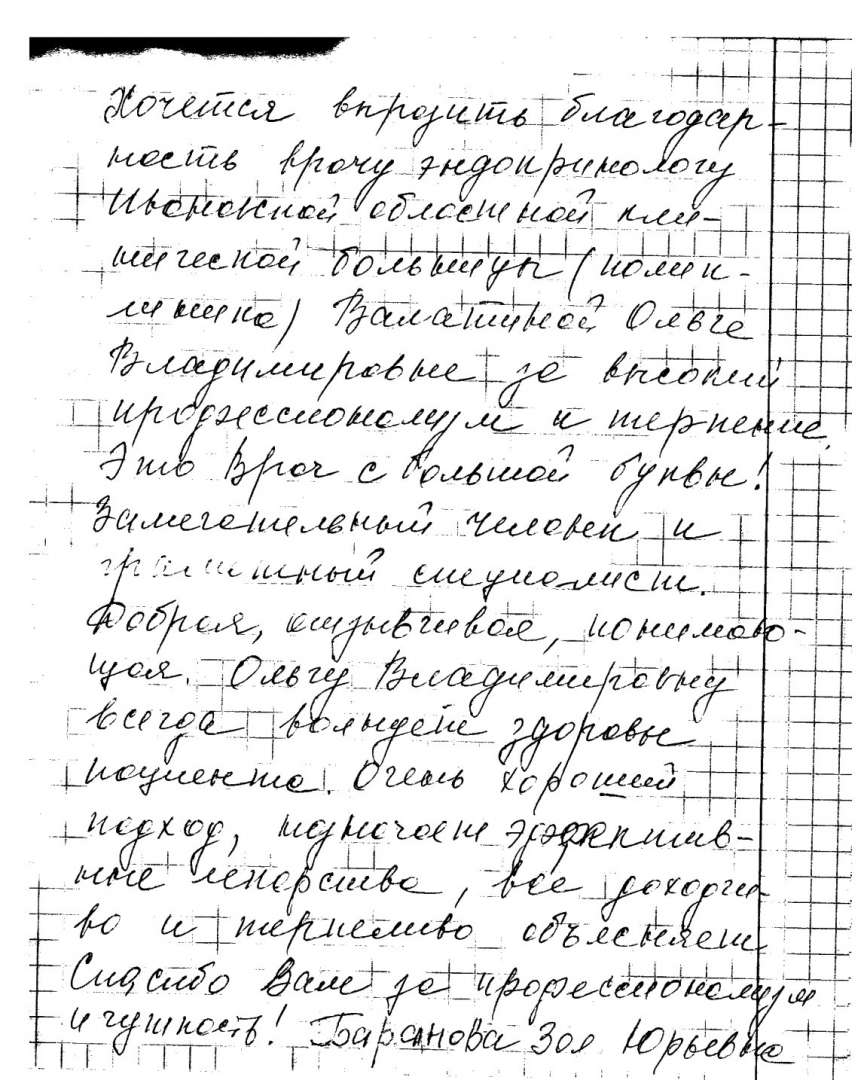 Хочется выразить благодар-
ность врачу эндокринологу
Ивановской областной кли-
нической больницы (поликли-
линика) Валатиной Ольге
Владимировне за высокий
профессионализм и терпение.
Это Врач с большой буквы!
Замечательный человек и
грамотный специалист.
Добрая, отзывчивая, понимаю-
щая. Ольгу Владимировну
всегда волнует здоровье
пациента. Очень хороший
подход, назначает эффектив-
ные лекарства, все доходчи-
во и терпеливо объясняет
Спасибо Вам за профессионализм
и чуткость! Баранова Зоя Юрьевна